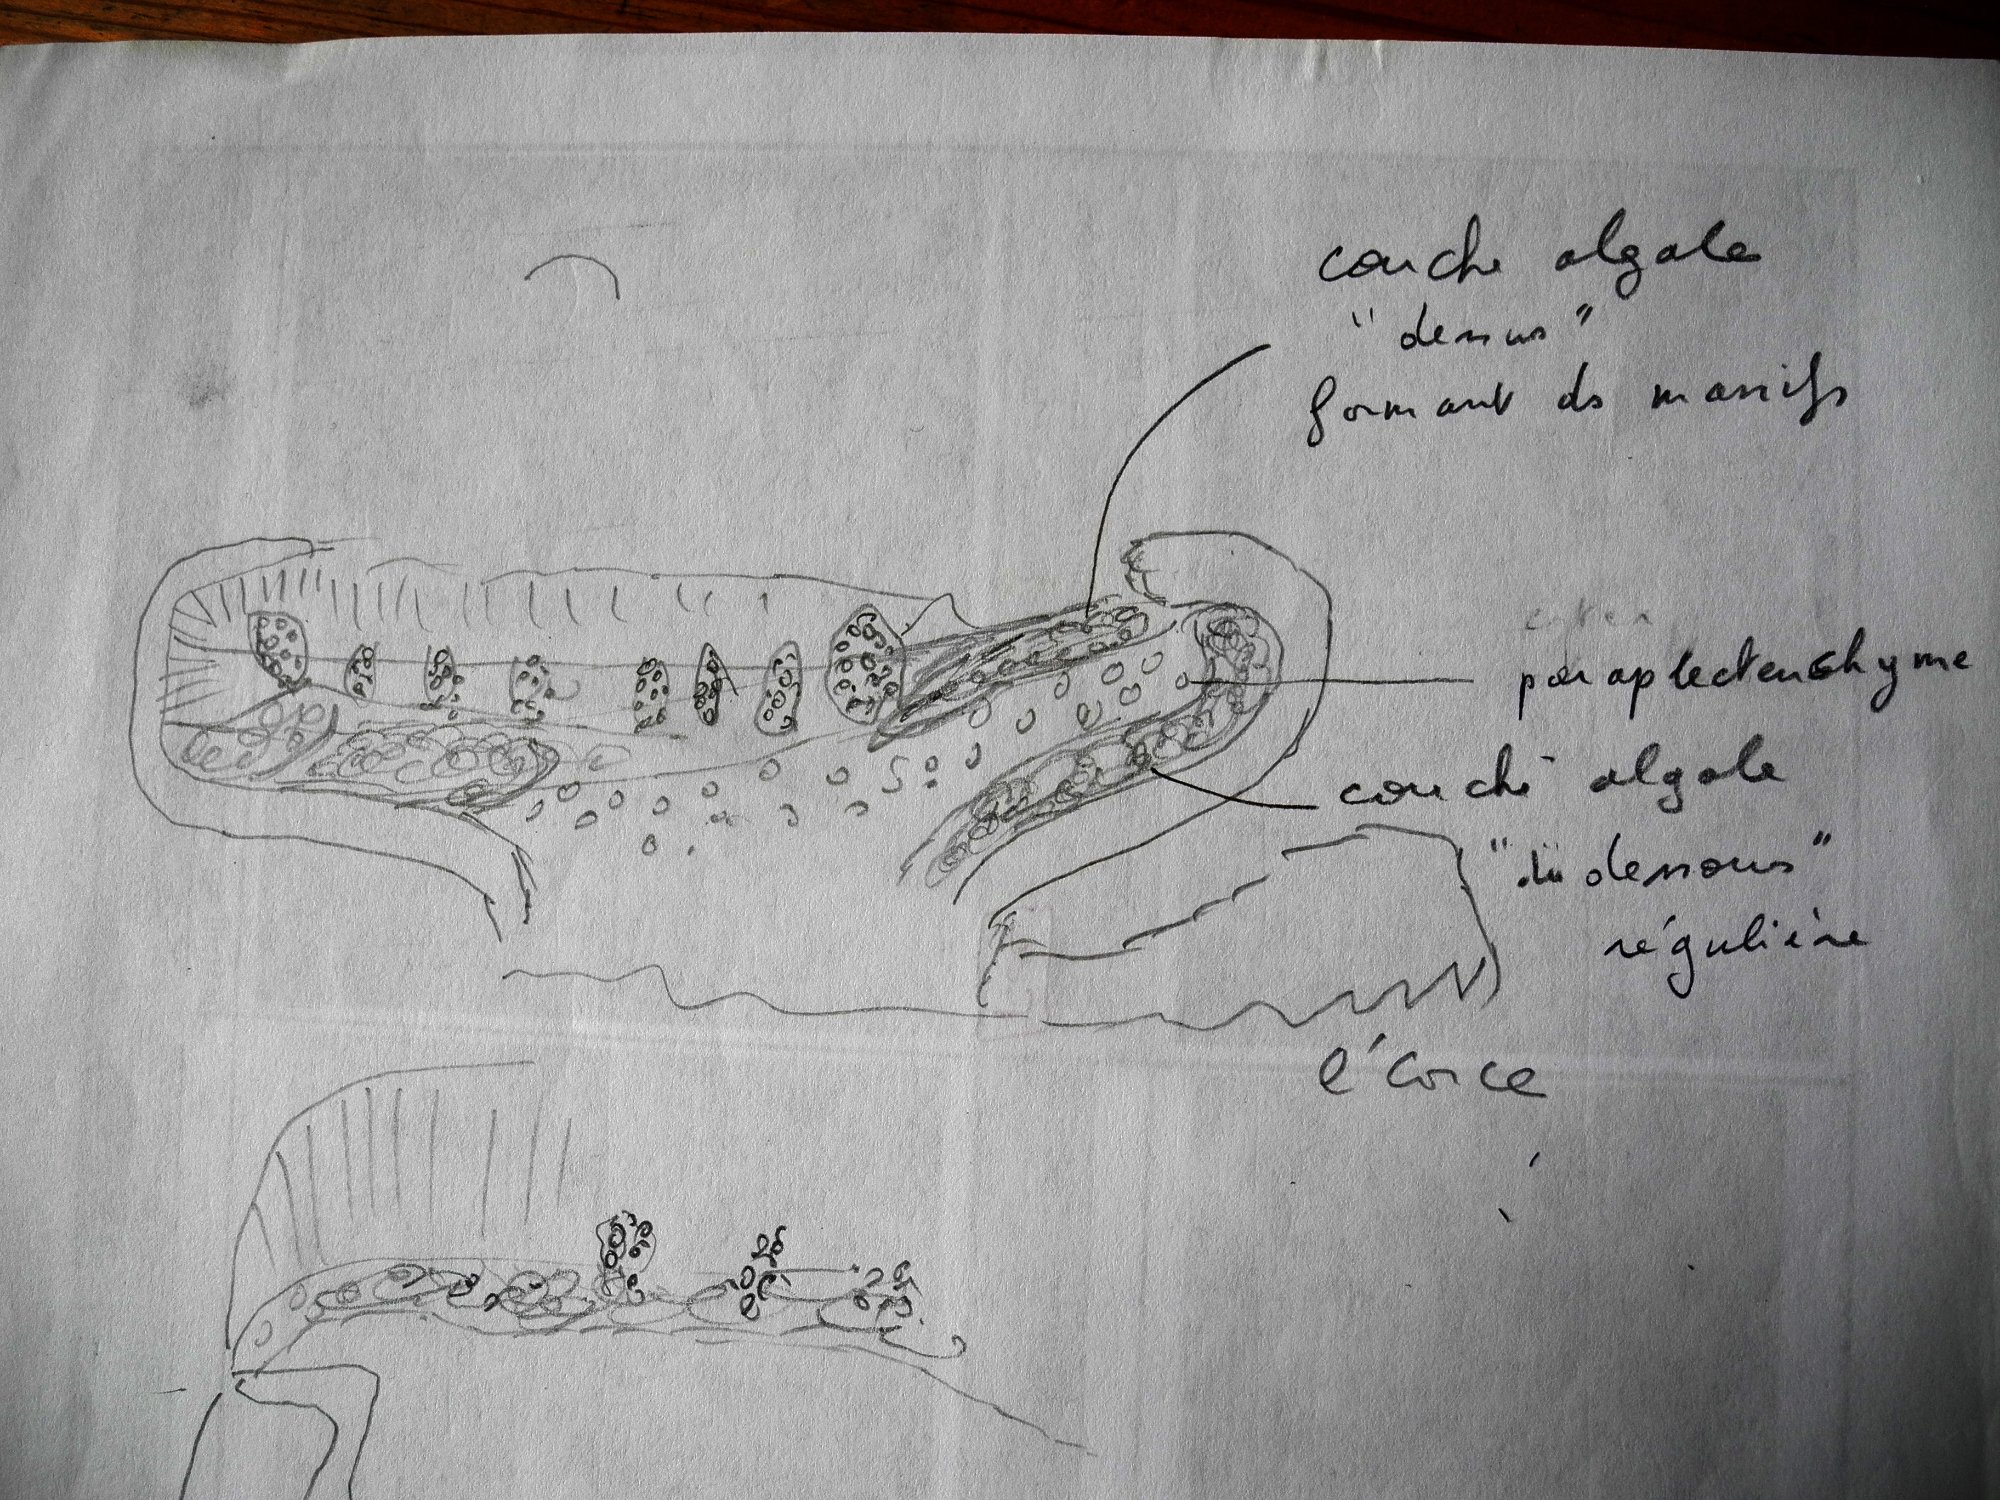 couche algale
"dessus"
formant ds massifs
paraplectenchyme
couche algale
"dessous"
régulière
l'écorce